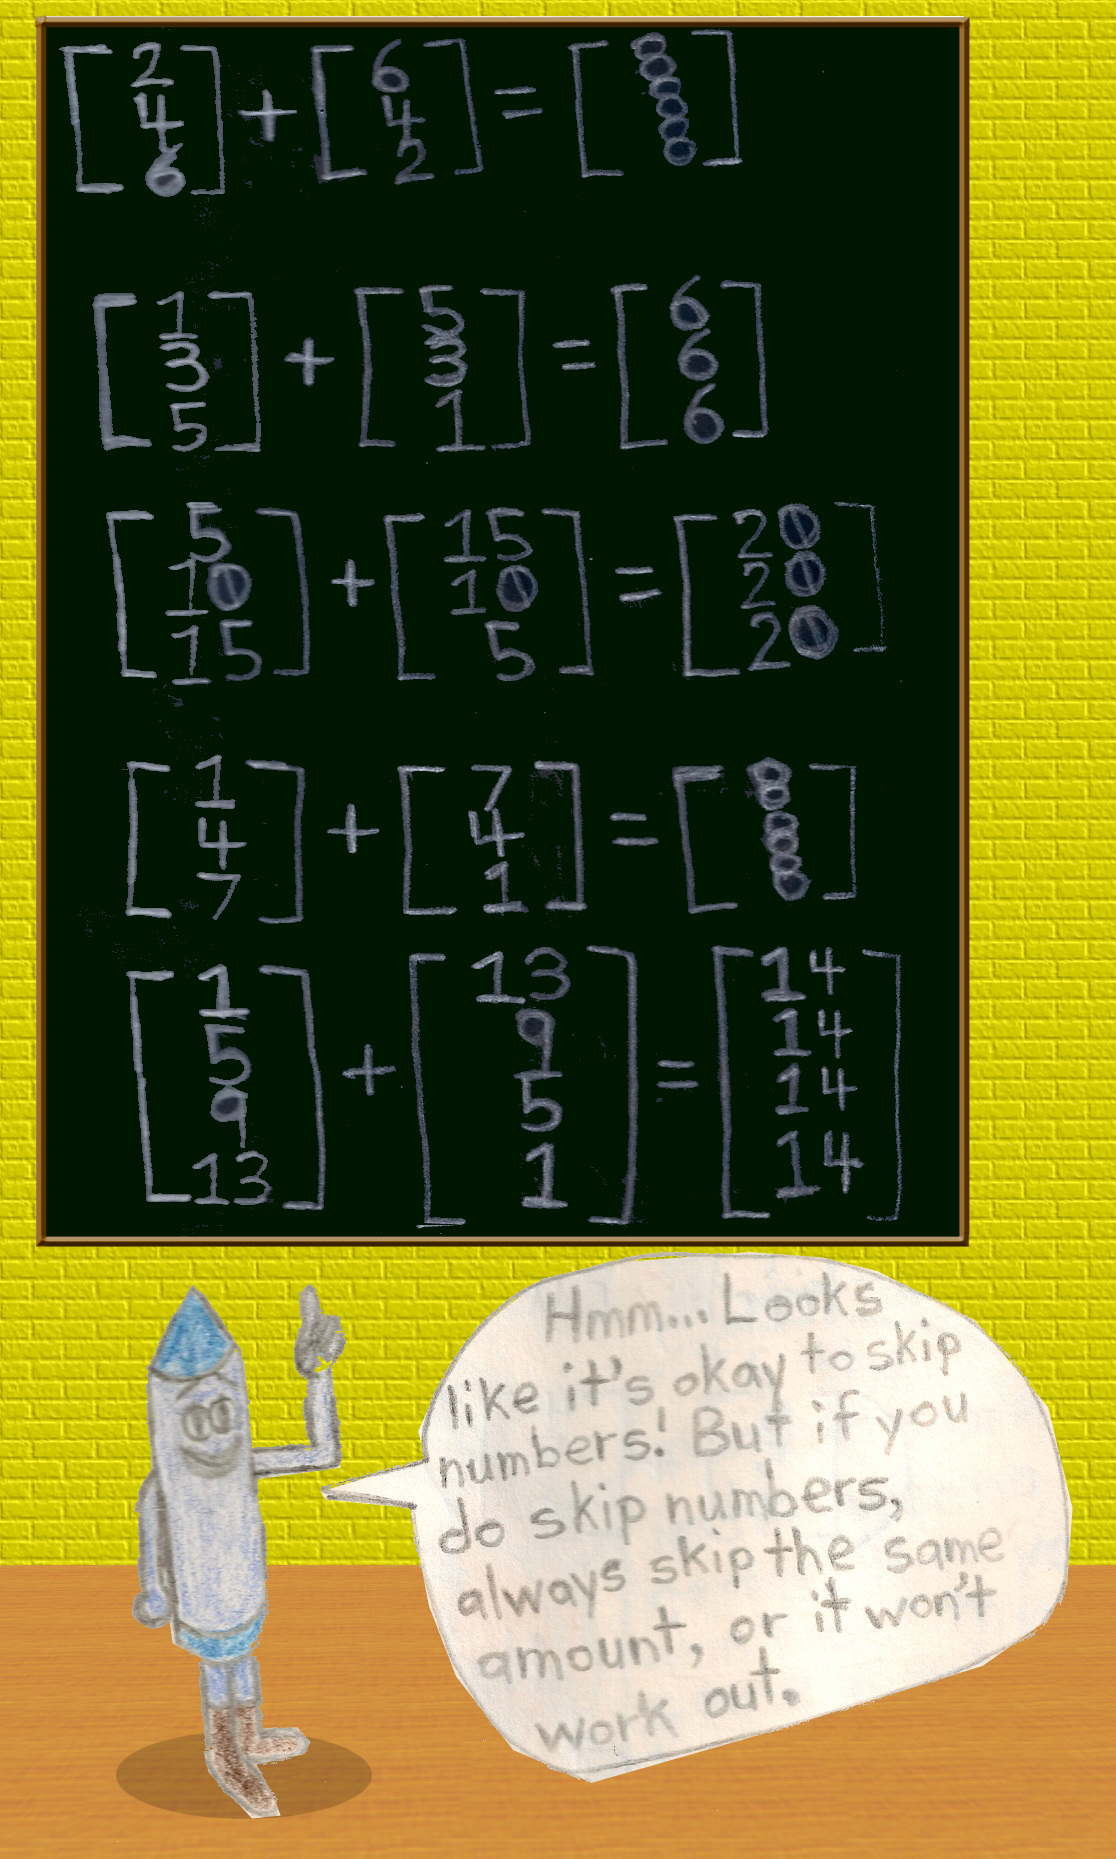 [2 4 6] + [6 4 2] = [8 8 8]
[1 3 5] + [5 3 1] = [6 6 6]
[5 10 15] + [15 10 5] = [20 20 20]
[1 4 7] + [7 4 1] = [8 8 8]
[1 5 9 13] + [13 9 5 1] = [14 14 14 14]
Hmm... Looks
like it's okay to skip
numbers! But if you
do skip numbers,
always skip the same
amount, or it won't
work out.